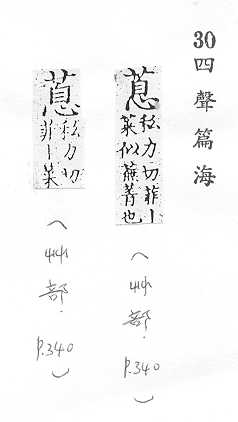 30四聲篇海
蒠
私力切菲丨
菜似蕪菁也
(艸部. P.340)
蒠
私力切
菲丨菜
(艸部. P.340)